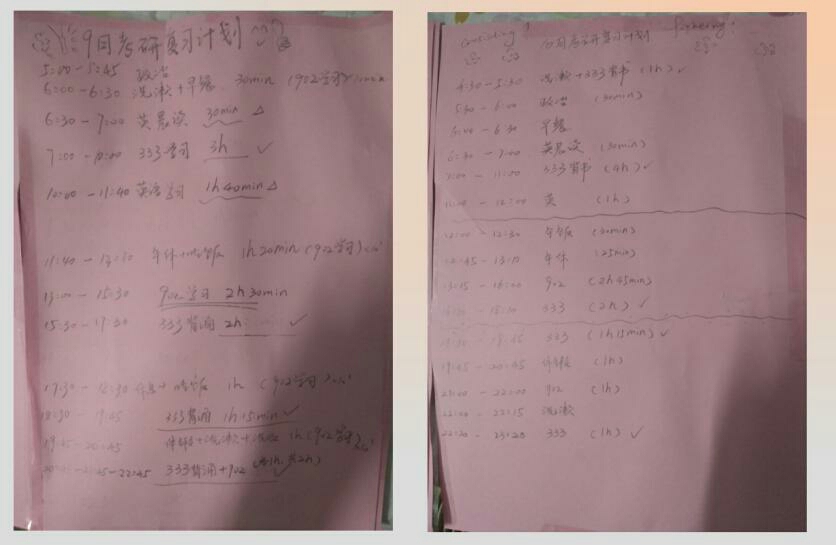 9月考研复习计划
5:00-5:45 政治
6:00-6:30 洗漱+早餐 30min (902学习)
6:30-7:00 英晨读 30min △
7:00-10:00 333学习 3h ✓
10:00-11:40 英语学习 1h40min △
11:40-13:00 午休+吃饭 1h20min (902学习)
13:00-15:30 902学习 2h30min
15:30-17:30 333背诵 2h ✓
17:30-18:30 休息+吃饭 1h (902学习)
18:30-19:45 333背诵 1h15min ✓
19:45-20:45 +洗漱+ 1h (902学习)
-22:45 333背诵+902
考研复习计划
4:30-5:30 洗漱+333背书 (1h) ✓
5:30-6:00 政治 (30min)
6:00-6:30 早餐
6:30-7:00 英晨读 (30min)
7:00-11:00 333背书 (4h) ✓
11:00-12:00 英 (1h)
12:00-12:30 午饭 (30min)
12:45-13:10 午休 (25min)
13:15-16:00 902 (2h45min)
333 (2h) ✓
18:30-19:45 333 (1h15min) ✓
19:45-20:45 (1h)
21:00-22:00 902 (1h)
22:00-22:15 洗漱
22:20-23:20 333 (1h) ✓